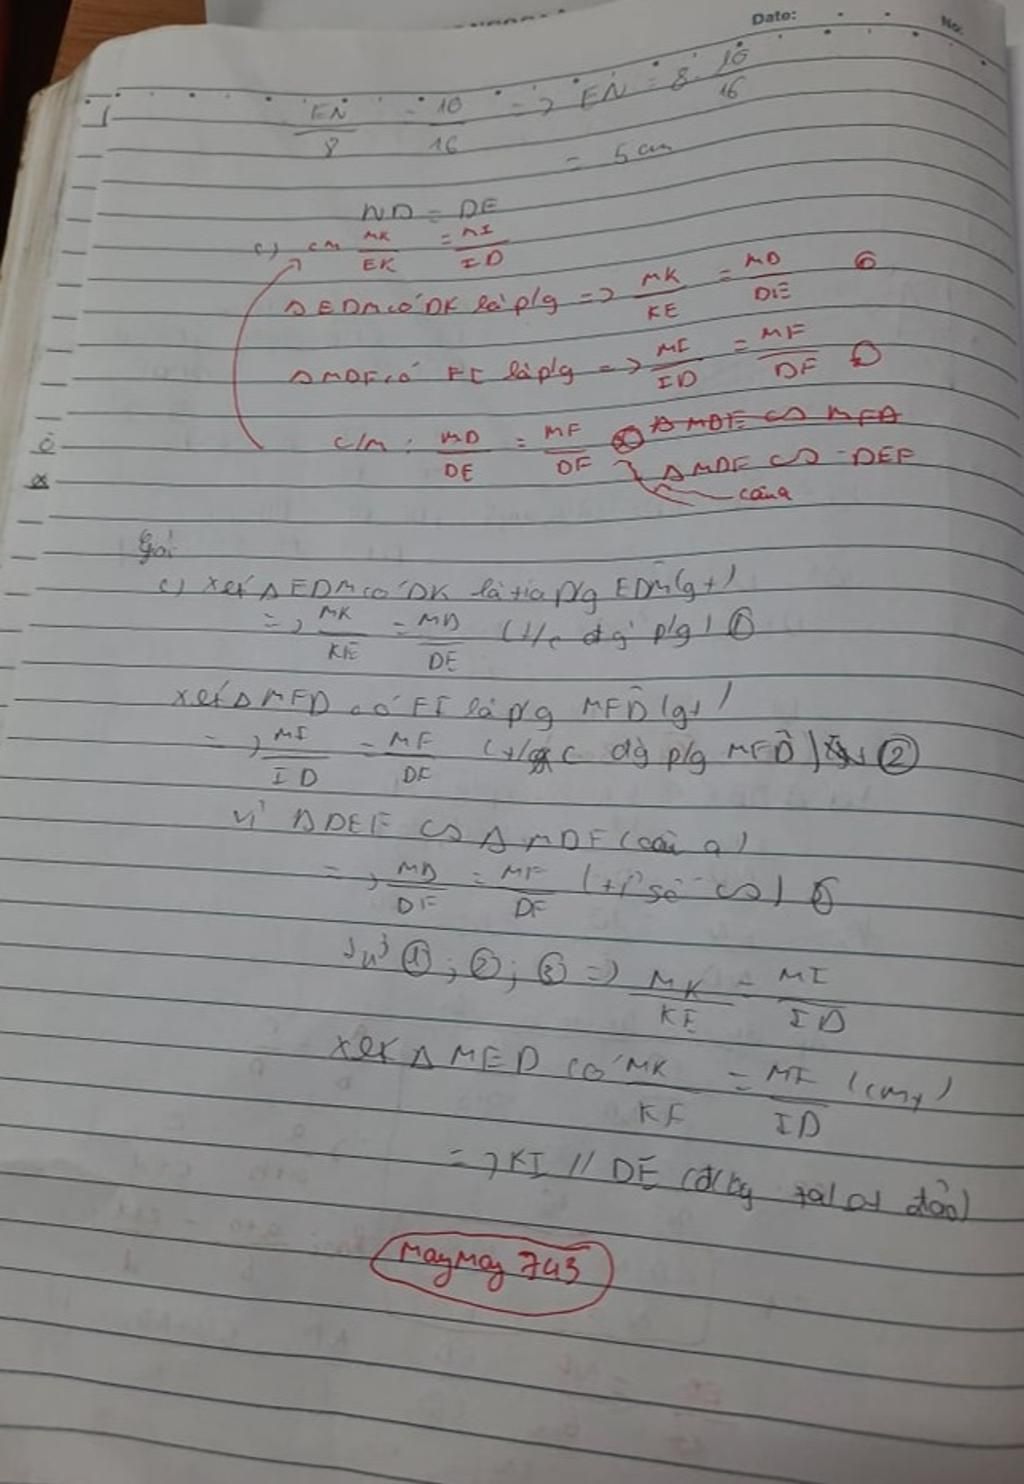 Date: No:
EN/8 = 10/16 => EN = 8 . 10/16
= 5 cm
ND = DE
c) cm MK/EK = MI/ID
Δ EDM có DK là p/g => MK/KE = MD/DE
Δ MDF có FI là p/g => MI/ID = MF/DF
c/m : MD/DE = MF/DF
Δ MDF ∽ DEF
câu a
Giải
c) xét Δ EDM có DK là tia p/g EDM (gt)
=> MK/KE = MD/DE (t/c đg p/g) ①
xét Δ MFD có FI là p/g MFD (gt)
=> MI/ID = MF/DF (t/c đg p/g MFD) ②
Vì Δ DEF ∽ Δ MDF (câu a)
=> MD/DF = MF/DF (tỉ số ∽)
Từ ① ; ② ; ③ => MK/KE = MI/ID
xét Δ MED có MK/KE = MI/ID (cmt)
=> KI // DE (đ/lý talet đảo)
MayMay 743